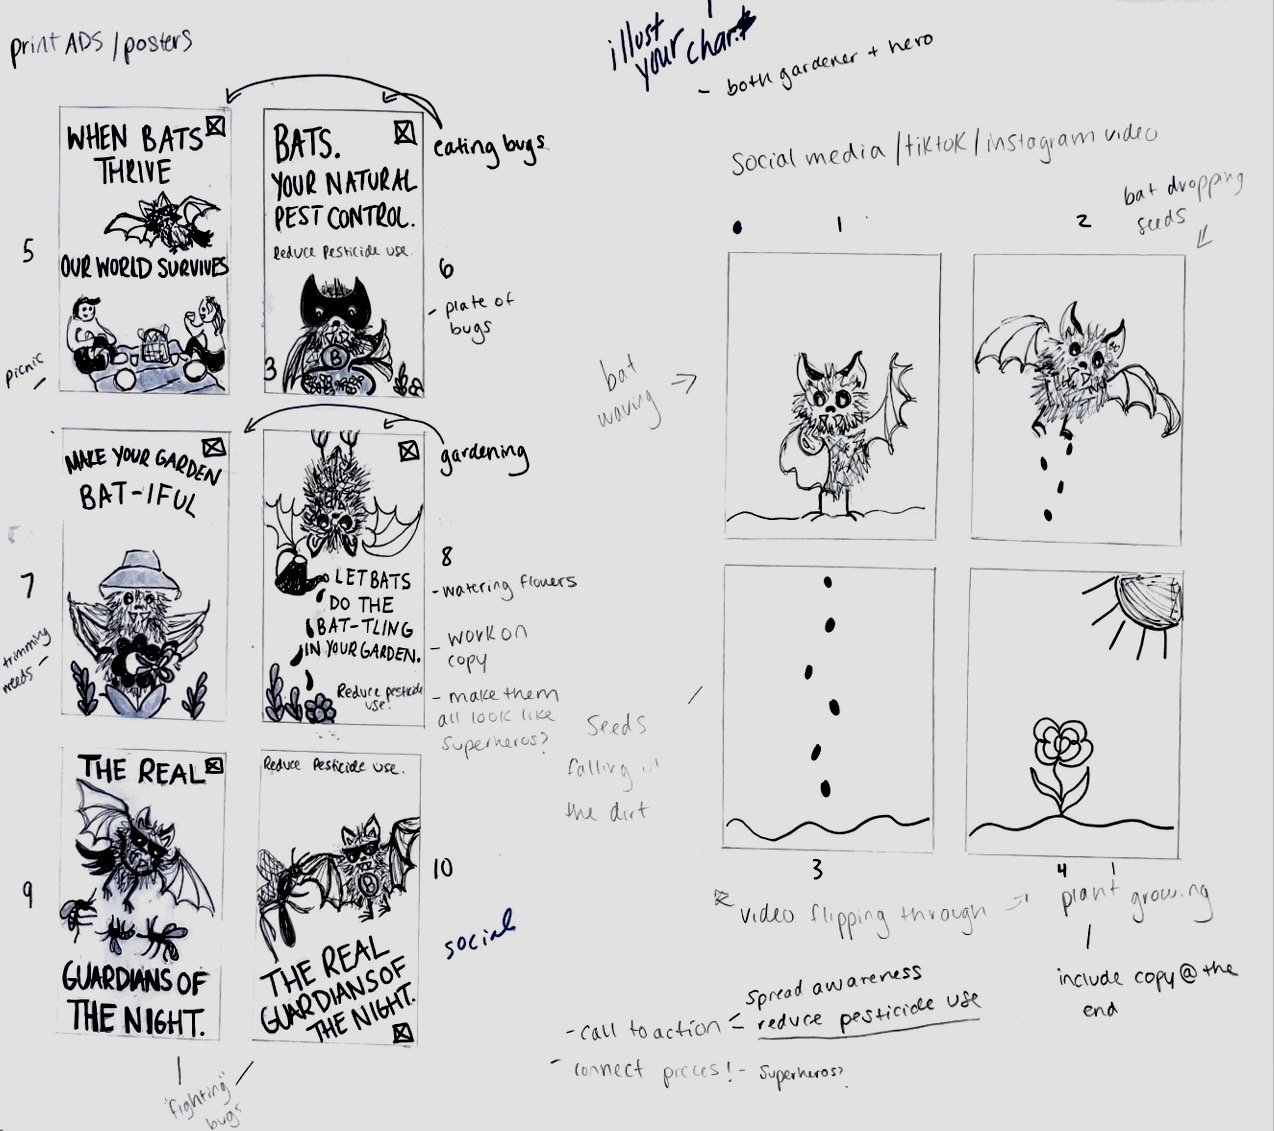 print ADS / posters
illust
your char.
- both gardener + hero
social media / tiktok / instagram video
eating bugs
5
WHEN BATS
THRIVE
OUR WORLD SURVIVES
picnic
BATS.
YOUR NATURAL
PEST CONTROL.
Reduce Pesticide use.
B
3
6
- plate of
bugs
gardening
7
MAKE YOUR GARDEN
BAT-IFUL
trimming
weeds
LET BATS
DO THE
BAT-TLING
IN YOUR GARDEN.
Reduce pesticide
use!
8
- watering flowers
- work on
copy
- make them
all look like
superheros?
9
THE REAL
GUARDIANS OF
THE NIGHT.
Reduce Pesticide use.
B
THE REAL
GUARDIANS OF
THE NIGHT.
10
social
"fighting"
bugs
1
bat
waving
2
bat dropping
seeds
seeds
falling in
the dirt
3
4
video flipping through
plant growing
include copy @ the
end
- call to action - spread awareness
reduce pesticide use
- connect pieces! - superheros?